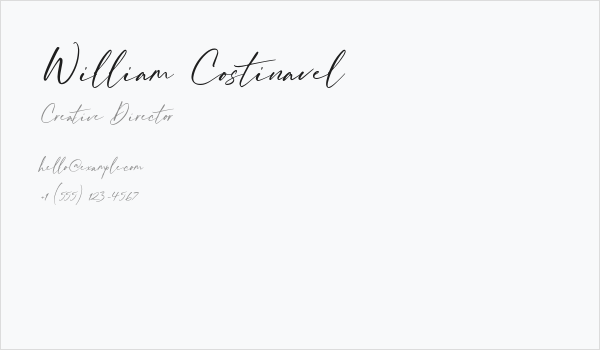 William Costinavel
Creative Director
hello@example.com
+1 (555) 123-4567